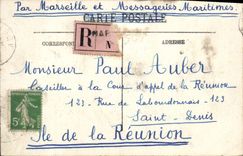 Par Marseille et Messageries Maritimes.
CARTE POSTALE
CORRESPON
ADRESSE
R
N
Monsieur Paul Auber
Conseiller à la Cour d'appel de la Réunion
123 - Rue de Labourdonnais - 123
Saint-Denis
Ile de la Réunion
5